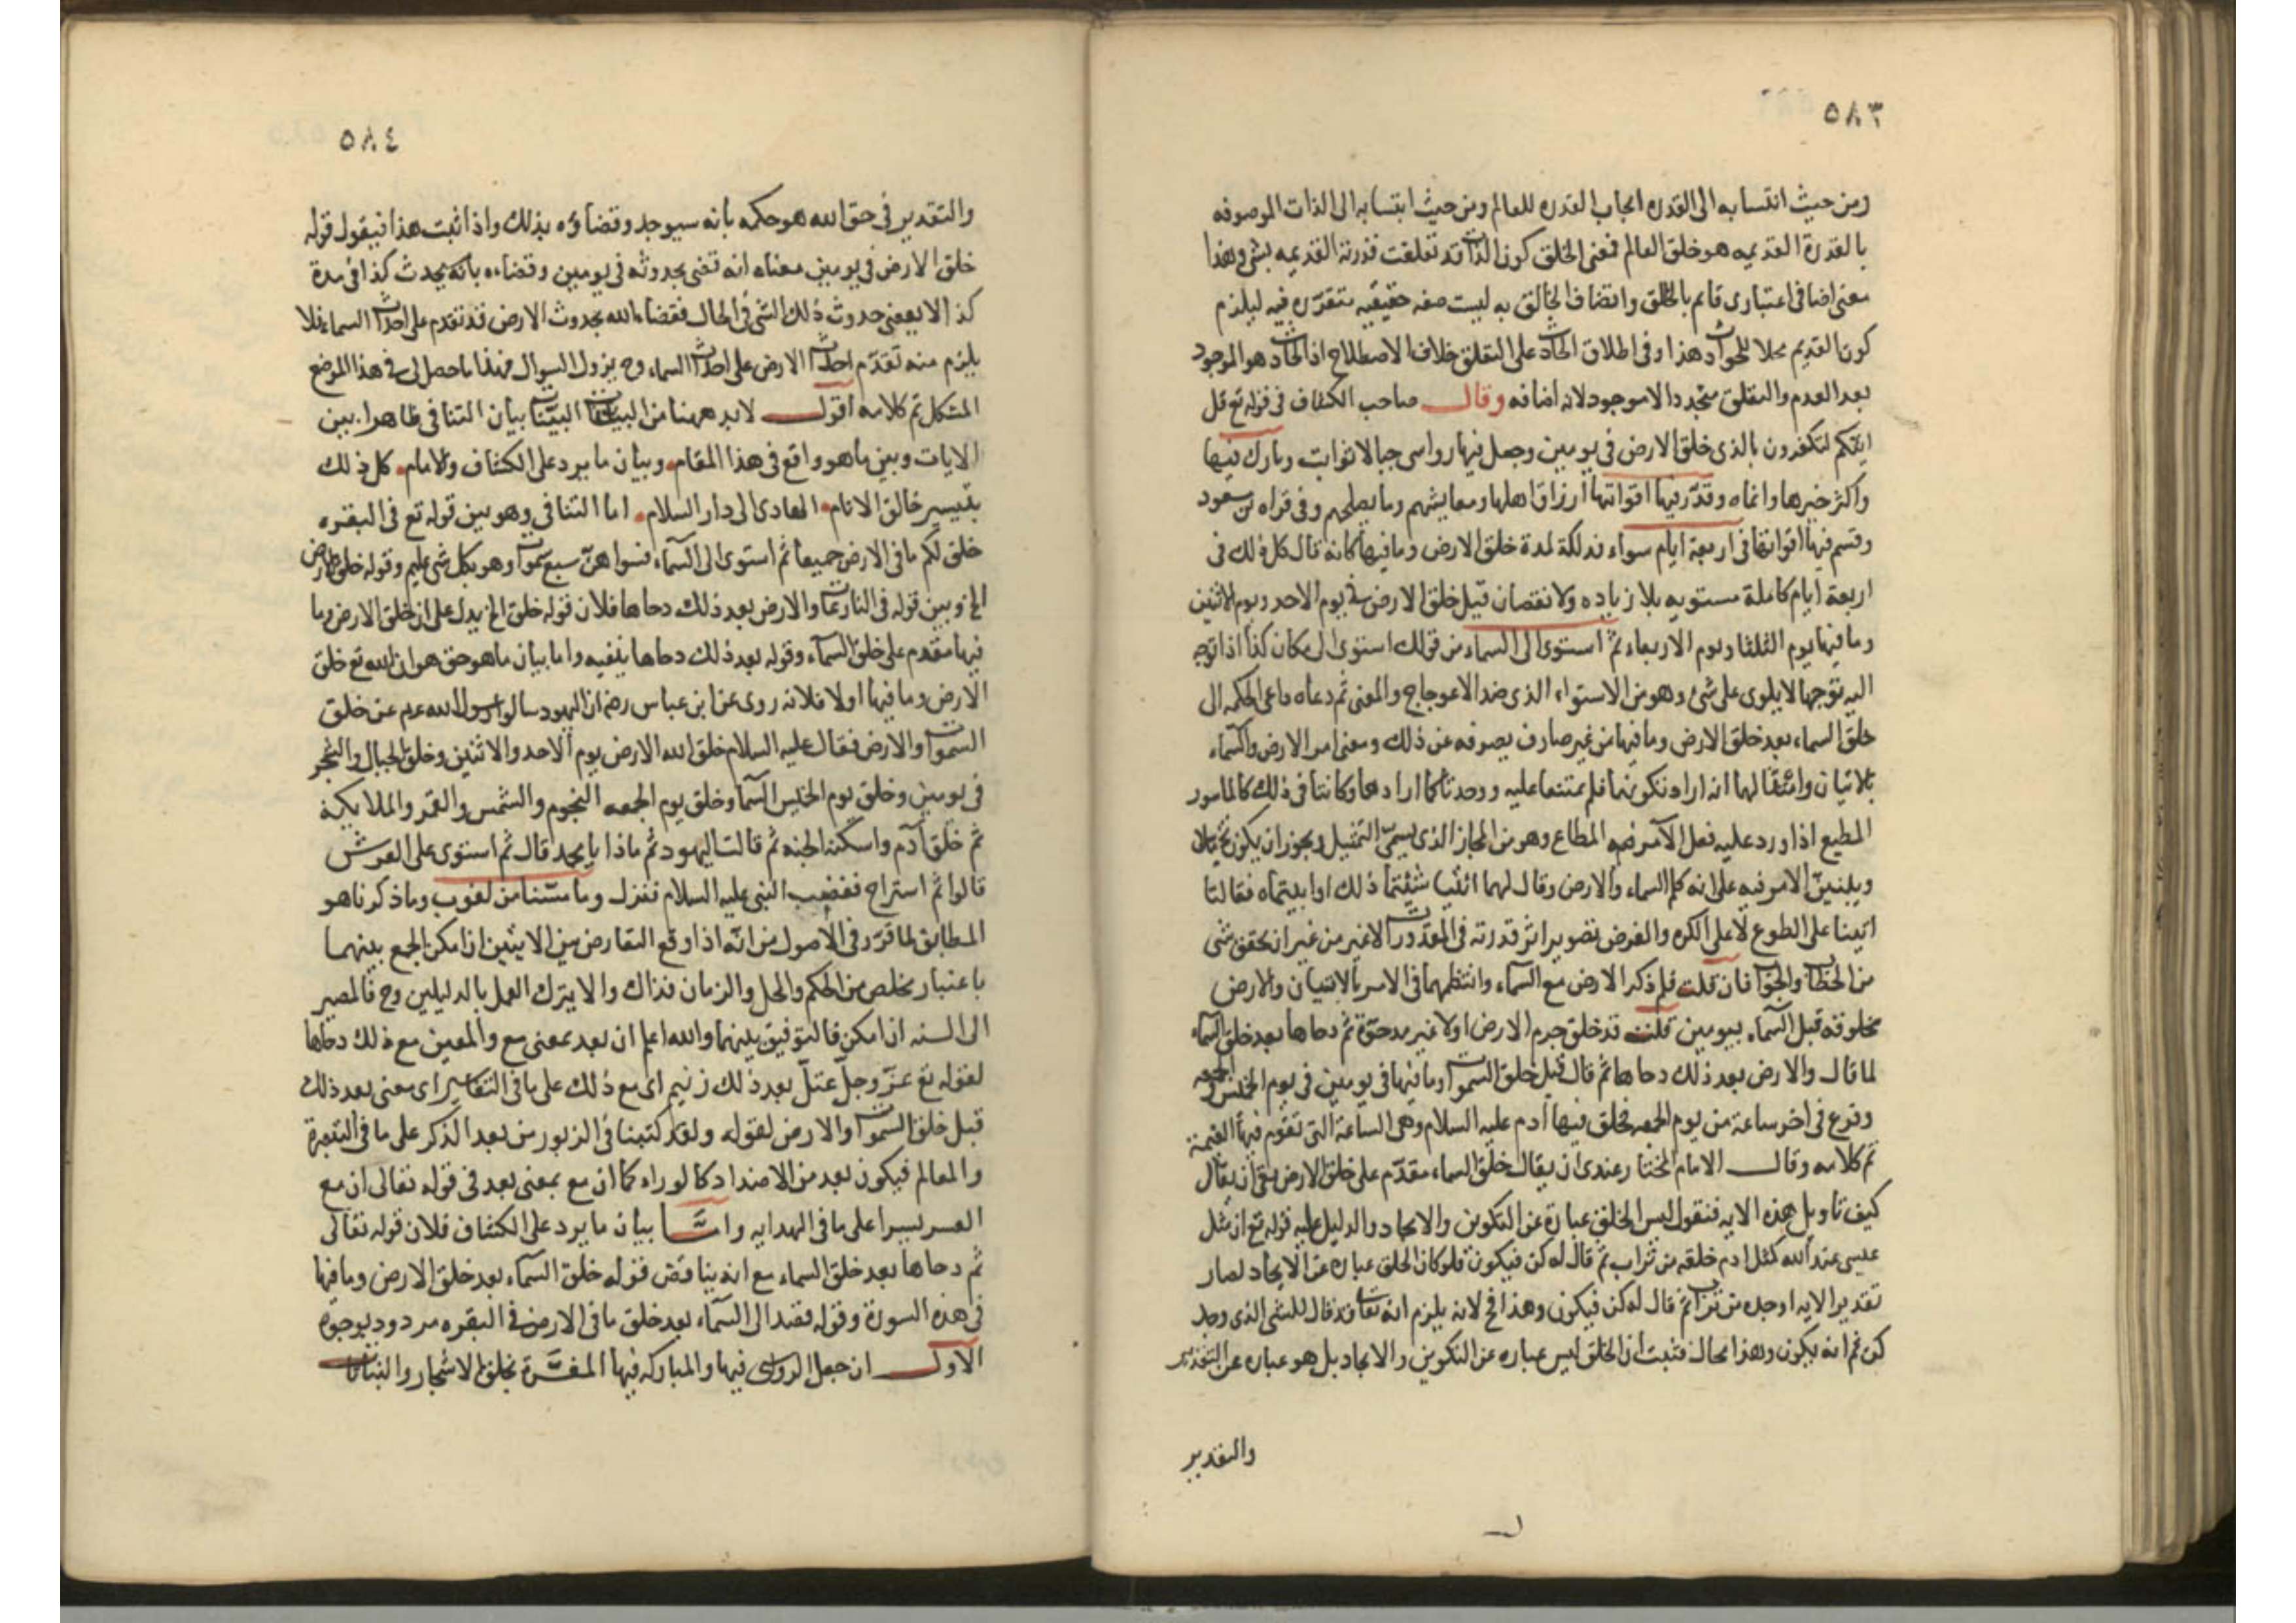 ٥٨٣
ومن حيث انتسابه الى القدرة ايجاب القدرة للعالم ومن حيث انتسابه الى الذات الموصوفه
بالقدرة القديمه هو خلق العالم فمعنى الخلق كون الذات قد تعلقت قدرته القديمه بشئ وهذا
معنى اضافى اعتبارى قائم بالخالق واتصاف الخالق به ليست صفه حقيقيه متقرره فيه ليلزم
كون القديم محلا للحوادث هذا وفى اطلاق الحادث على التعلق خلاف الاصطلاح اذ الحادث هو الموجود
بعد العدم والتعلق متجدد الا موجود لانه اضافه وقال صاحب الكشاف فى قوله تع قل
ائنكم لتكفرون بالذى خلق الارض فى يومين وجعل فيها رواسى جبالا ثوابت وبارك فيها
واكثر خيرها وانماه وقدر فيها اقواتها ارزاق اهلها ومعايشهم وما يصلحهم وفى قراه بن مسعود
وقسم فيها اقواتها فى اربعة ايام سواء فذلكة لمدة خلق الارض وما فيها كانه قال كل ذلك فى
اربعة ايام كاملة مستويه بلا زياده ولا نقصان قيل خلق الارض فى يوم الاحد ويوم الاثنين
وما فيها يوم الثلثا ويوم الاربعاء ثم استوى الى السماء من قولك استوى الى مكان كذا اذا توجه
اليه توجها لا يلوى على شئ وهو من الاستواء الذى ضد الاعوجاج والمعنى ثم دعاه داعى الحكمه ال
خلق السماء بعد خلق الارض وما فيها من غير صارف يصرفه عن ذلك ومعنى امر الارض والسماء
بالاتيان وامتثالهما انه اراد تكوينهما فلم يمتنعا عليه ووجدتا كما ارادهما وكانتا فى ذلك كالمأمور
المطيع اذا ورد عليه فعل الآمر المطاع وهو من المجاز الذى يسمى التمثيل ويجوز ان يكون تخييلا
ويبنى الامر فيه على انه كلم السماء والارض وقال لهما ائتيا شئتما ذلك او ابيتماه فقالتا
اتينا على الطوع لا على الكره والغرض تصوير اثر قدرته فى المقدورات لا غير من غير ان يحقق شى
من الخطاب والجواب فان قلت فلم ذكر الارض مع السماء وانتظمهما فى الامر بالاتيان والارض
مخلوقه قبل السماء بيومين قلت قد خلق جرم الارض اولا غير مدحوة ثم دحاها بعد خلق السماء
لما قال والارض بعد ذلك دحاها ثم قال قيل خلق السموات وما فيها فى يومين فى يوم الخميس والجمعه
وفرغ فى اخر ساعة من يوم الجمعه فخلق فيها أدم عليه السلام وهى الساعة التى تقوم فيها القيمة
تم كلامه وقال الامام المختار عندى ان يقال خلق السماء مقدم على خلق الارض بقى ان يقال
كيف تاويل هذه الايه فنقول ليس الخلق عبارة عن التكوين والايجاد والدليل عليه قوله تع ان مثل
عيسى عند الله كمثل ادم خلقه من تراب ثم قال له كن فيكون فلو كان الخلق عباره عن الايجاد لصار
تقدير الايه اوجده من تراب ثم قال له كن فيكون وهذا مح لانه يلزم انه تعالى قد قال للشئ الذى وجد
كن ثم انه يكون وهذا محال فثبت ان الخلق ليس عباره عن التكوين والايجاد بل هو عباره عن التقدير
والتقدير
٥٨٤
والتقدير فى حق الله هو حكمه بانه سيوجد وقضاؤه بذلك واذا ثبت هذا فيقول قوله
خلق الارض فى يومين معناه انه قضى بحدوثه فى يومين وقضاءه بانه يحدث كذا فى مدة
كذا لا يقضى حدوث ذلك الشى فى الحال فقضاء الله بحدوث الارض قد تقدم على احداث السماء فلا
يلزم منه تقدم احداث الارض على احداث السماء وح يزول السوال فهذا ما حصل لى فى هذا الموضع
المشكل تم كلامه اقول لابد ههنا من البيانات البينات بيان التنافى ظاهرا بين
الايات وبين ما هو واقع فى هذا المقام وبيان ما يرد على الكشاف والامام كل ذلك
بتيسير خالق الانام الهادى الى دار السلام اما التنافى وهو بين قوله تع فى البقره
خلق لكم ما فى الارض جميعا ثم استوى الى السماء فسواهن سبع سموات وهو بكل شى عليم وقوله خلق الارض
الخ وبين قوله فى النازعات والارض بعد ذلك دحاها فلان قوله خلق الخ يدل على ان خلق الارض وما
فيها مقدم على خلق السماء وقوله بعد ذلك دحاها ينفيه واما بيان ما هو حق هو ان الله تع خلق
الارض وما فيها اولا فلانه روى عن ابن عباس رضه ان اليهود سالوا رسول الله عم عن خلق
السموات والارض فقال عليه السلام خلق الله الارض يوم الاحد والاثنين وخلق الجبال والشجر
فى يومين وخلق يوم الخميس السماء وخلق يوم الجمعه النجوم والشمس والقمر والملايكة
ثم خلق آدم واسكنه الجنه ثم قالت اليهود ثم ماذا يا محمد قال ثم استوى على العرش
قالوا ثم استراح فغضب النبى عليه السلام فنزل وما مسنا من لغوب وما ذكرناهو
المطابق لما قرر فى الاصول من انه اذا وقع التعارض بين الايتين ان امكن الجمع بينهما
باعتبار مخلص من الحكم والحل والزمان فذاك والا يترك العمل بالدليلين وح فالمصير
الى السنه ان امكن فالتوفيق بينهما والله اعلم ان بعد بمعنى مع والمعنى مع ذلك دحاها
لقوله تع عز وجل عتل بعد ذلك زنيم اى مع ذلك على ما فى التفاسير اى معنى بعد ذلك
قبل خلق السموات والارض لقوله ولقد كتبنا فى الزبور من بعد الذكر على ما فى التبصرة
والمعالم فيكون بعد من الاضداد كالوراه كما ان مع بمعنى بعد فى قوله تعالى ان مع
العسر يسرا على ما فى الهدايه واما بيان ما يرد على الكشاف فلان قوله تعالى
ثم دحاها بعد خلق السماء مع انه يناقض قوله خلق السماء بعد خلق الارض وما فيها
فى هذه السورة وقوله فقصد الى السماء بعد خلق ما فى الارض فى البقره مردود بوجوه
الاول ان جعل الرواسى فيها والمباركه فيها المفسرة بخلق الاشجار والنباتات